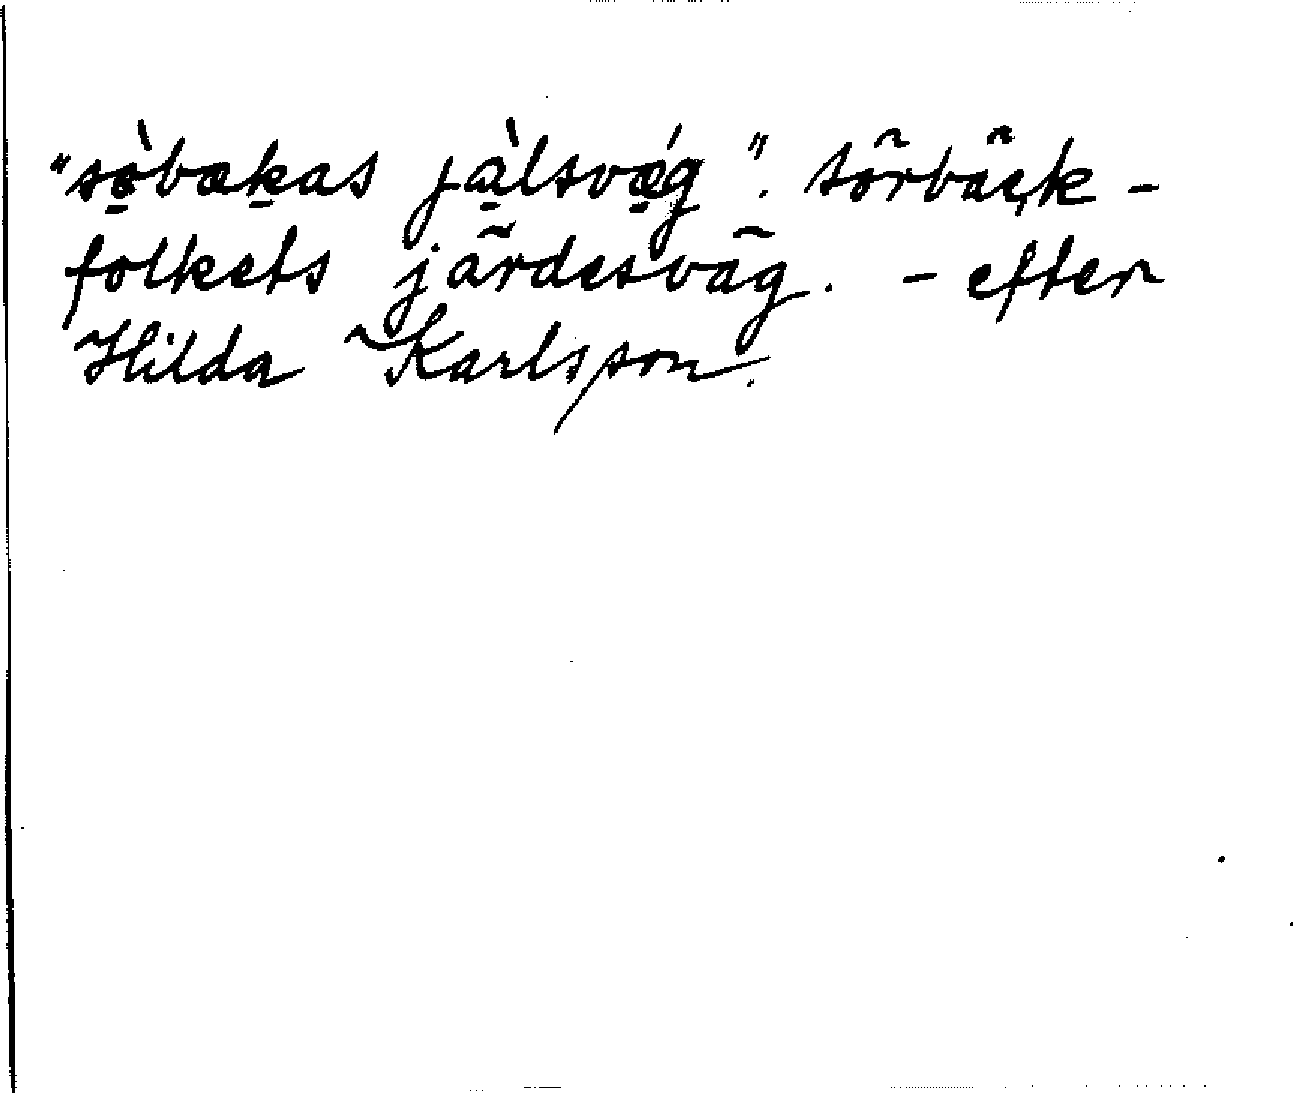 "sø̱̀bæḵas jà̱lsvǽ̱g". Sörbäck-
folkets järdesväg. - efter
Hilda Karlsson.